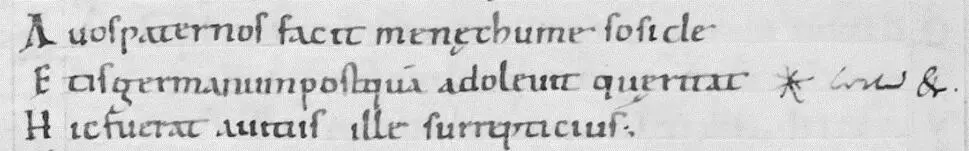 A uos paternos facit menęchume sosicle
E tis germanum postquā adoleuit quęritat * &.
H ic fuerat auctus ille surrepticius.